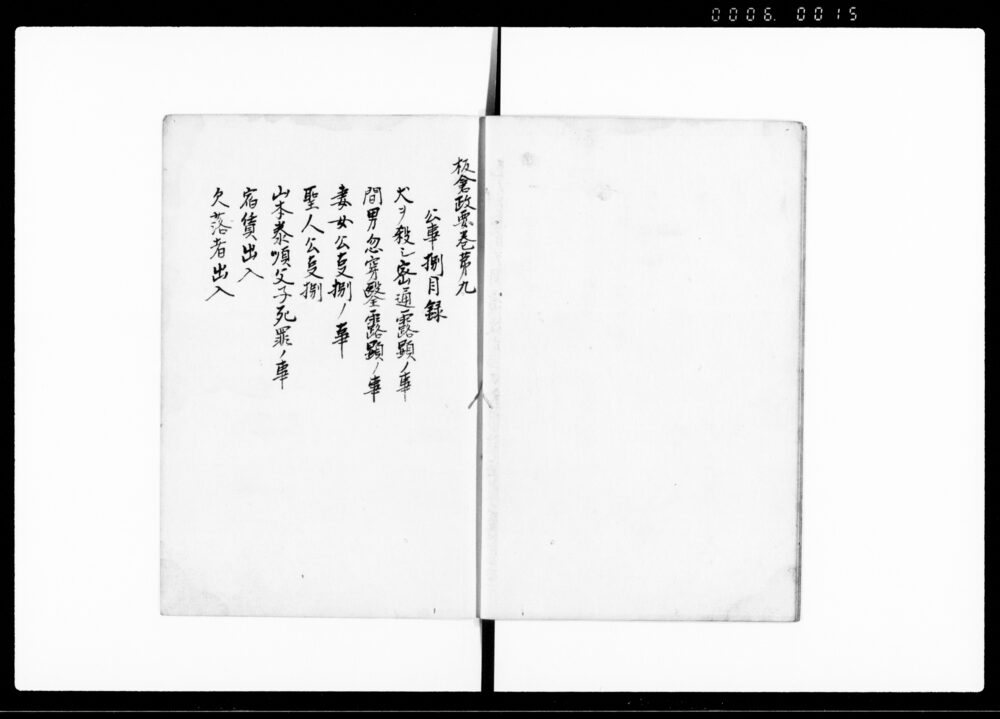 0006. 0015
板倉政要巻第九
公事捌目録
犬ヲ殺シ密通露顕ノ事
間男忽穿鑿露顕ノ事
妻女公事捌ノ事
聖人公事捌
山本泰順父子死罪ノ事
宿賃出入
欠落者出入